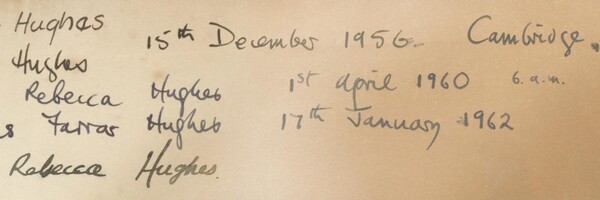 Hughes
15th December 1956. Cambridge.
Hughes
Rebecca Hughes 1st april 1960 6. a.m.
s Farrar Hughes 17th January 1962
Rebecca Hughes.